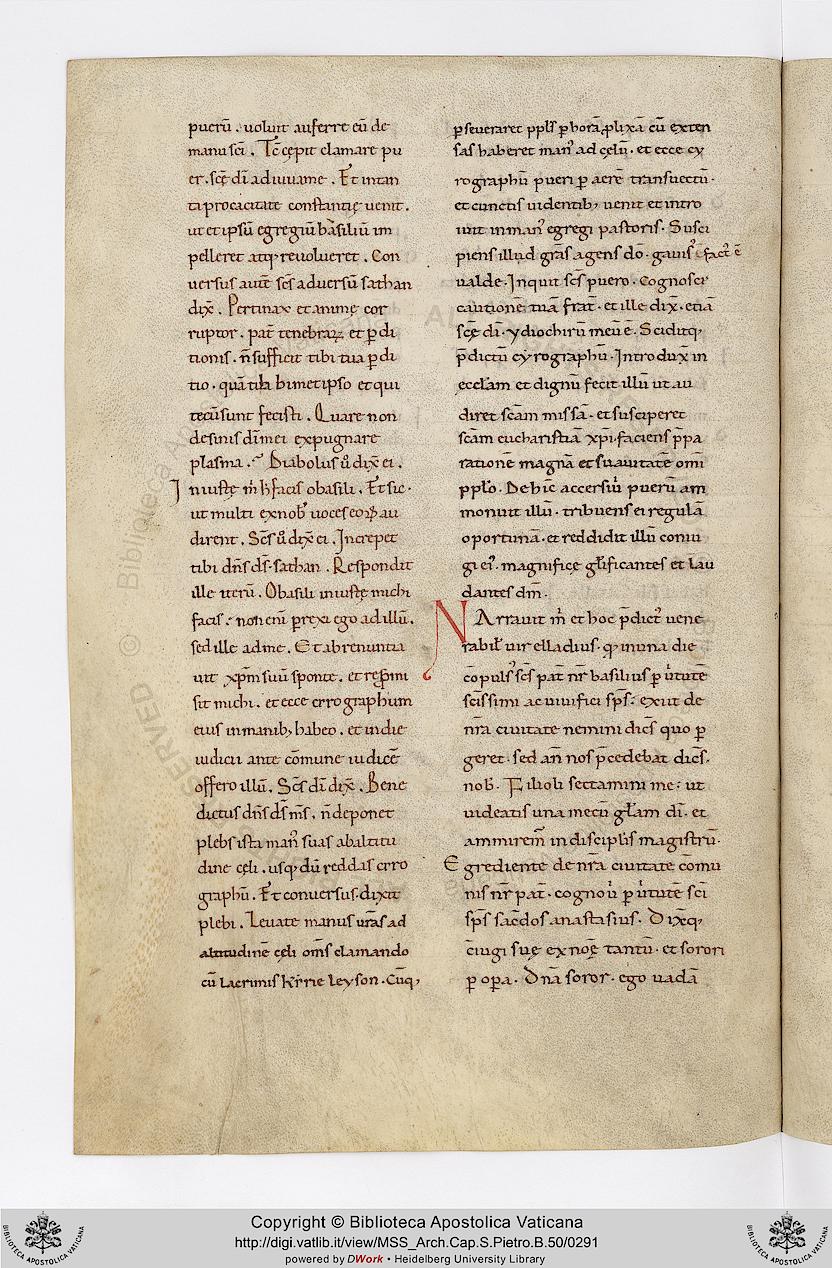 puerū. uoluit auferre eū de
manu sc̄i. Tc̄ cępit clamare pu
er. sc̄e dī adiuua me. Et in tan
ta procacitate constantię uenit.
ut et ipsū egregiū basiliū im
pelleret atq; reuolueret. Con
uersus aut̄ sc̄s aduersū sathan
dix̄. Pertinax et animę cor
ruptor. pat̄ tenebraꝝ et ꝑdi
tionis. n̄ sufficit tibi tua ꝑdi
tio. quā tibimetipso et qui
tecū sunt fecisti. Quare non
desinis dī mei expugnare
plasma. Diabolus ů dix̄ ei.
Iniustę m̄ h̄ facis o basili. Et sic.
ut multi ex nob̄ uoces eoꝝ au
dirent. Sc̄s ů dix̄ ei. Increpet
tibi dn̄s ds̄. sathan. Respondit
ille iterū. O basili iniustę michi
facis. non eni ꝑrexi ego ad illū.
sed ille ad me. Et abrenuntia
uit xp̄m suū sponte. et repromi
sit michi. et ecce cirographum
eius in manib; habeo. et in die
iudicii ante cōmune iudicē
offero illū. Sc̄s dī dix̄. Bene
dictus dn̄s ds̄ ms̄. n̄ deponet
plebs ista man' suas ab altitu
dine cęli. usq; dū reddas ciro
graphū. Et conuersus. dixit
plebi. Leuate manus ur̄as ad
altitudinē cęli om̄s clamando
cū lacrimis kyrie leyson. Cūq;
ꝑseueraret ppl's ꝑ horā ꝓlixā cū exten
sas haberet man' ad cęlū. et ecce cy
rographū pueri ꝑ aerē transuectū.
et cunctis uidentib; uenit et intro
iuit in man' egregi pastoris. Susci
piens illud grās agens dō. gauis' ē fact' ē
ualde. Inquit sc̄s puero. Cognosci
cautionē tuā frat̄. et ille dix̄. etiā
sc̄e dī. ydiochirū meū ē. Sciditq;
p̄dictū cyrographū. Introdux̄ in
eccl'am et dignū fecit illū ut au
diret sc̄am missā. et susciperet
sc̄am eucharistiā xp̄i. faciens p̄pa
rationē magnā et suauitatē omī
ppl'o. Dehic accersiů puerū am
monuit illū. tribuens ei regulā
oportunā. et reddidit illū coniu
gi ei'. magnificę gl'ificantes et lau
dantes dm̄.
NArrauit m̄ et hoc p̄dict' uene
rabil' uir elladius. q' in una die
cōpuls' sc̄s pat̄ nr̄ basilius ꝑ ůtutē
sc̄issimi ac uiuifici sp̄s. exiit de
nr̄a ciuitate nemini dic̄s quo ꝑ
geret. sed an̄ nos p̄cedebat dic̄s.
nob. Filioli sectamini me. ut
uideatis una mecū gl'am dī. et
ammirem̄ in discipl'is magistrū.
Egrediente de nr̄a ciuitate cōmu
nis nr̄ pat̄. cognoů ꝑ ůtutē sc̄i
sp̄s sac̄dos anastasius. Dix̄q;
c̄iugi suę ex noē tantū. et sorori
ꝑ oꝑa. Dn̄a soror. ego uadā
Copyright © Biblioteca Apostolica Vaticana
http://digi.vatlib.it/view/MSS_Arch.Cap.S.Pietro.B.50/0291
powered by DWork • Heidelberg University Library